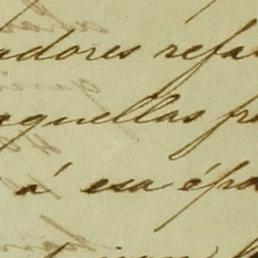 adores refa
aquellas fr
á esa épo